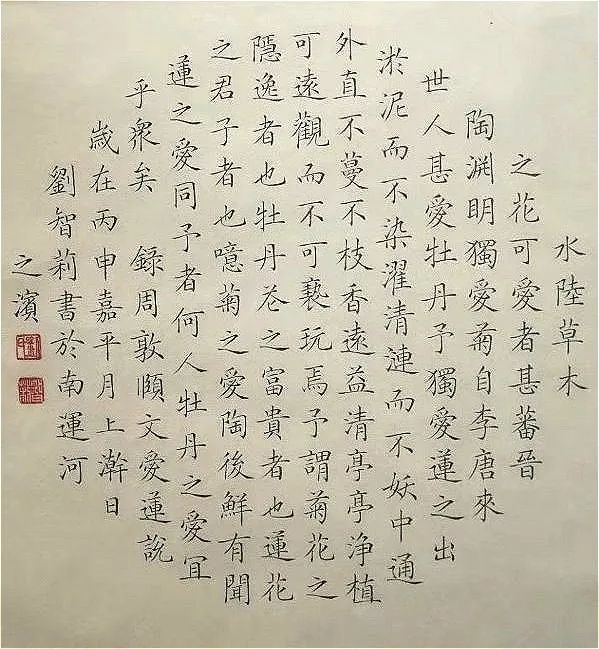 水陸草木
之花可愛者甚蕃晉
陶渊明獨愛菊自李唐來
世人甚愛牡丹予獨愛蓮之出
淤泥而不染濯清漣而不妖中通
外直不蔓不枝香遠益清亭亭浄植
可遠觀而不可褻玩焉予謂菊花之
隱逸者也牡丹花之富貴者也蓮花
之君子者也噫菊之愛陶後鮮有聞
蓮之愛同予者何人牡丹之愛宜
乎衆矣 錄周敦頤文愛蓮說
歲在丙申嘉平月上澣日
劉智莉書於南運河
之濱